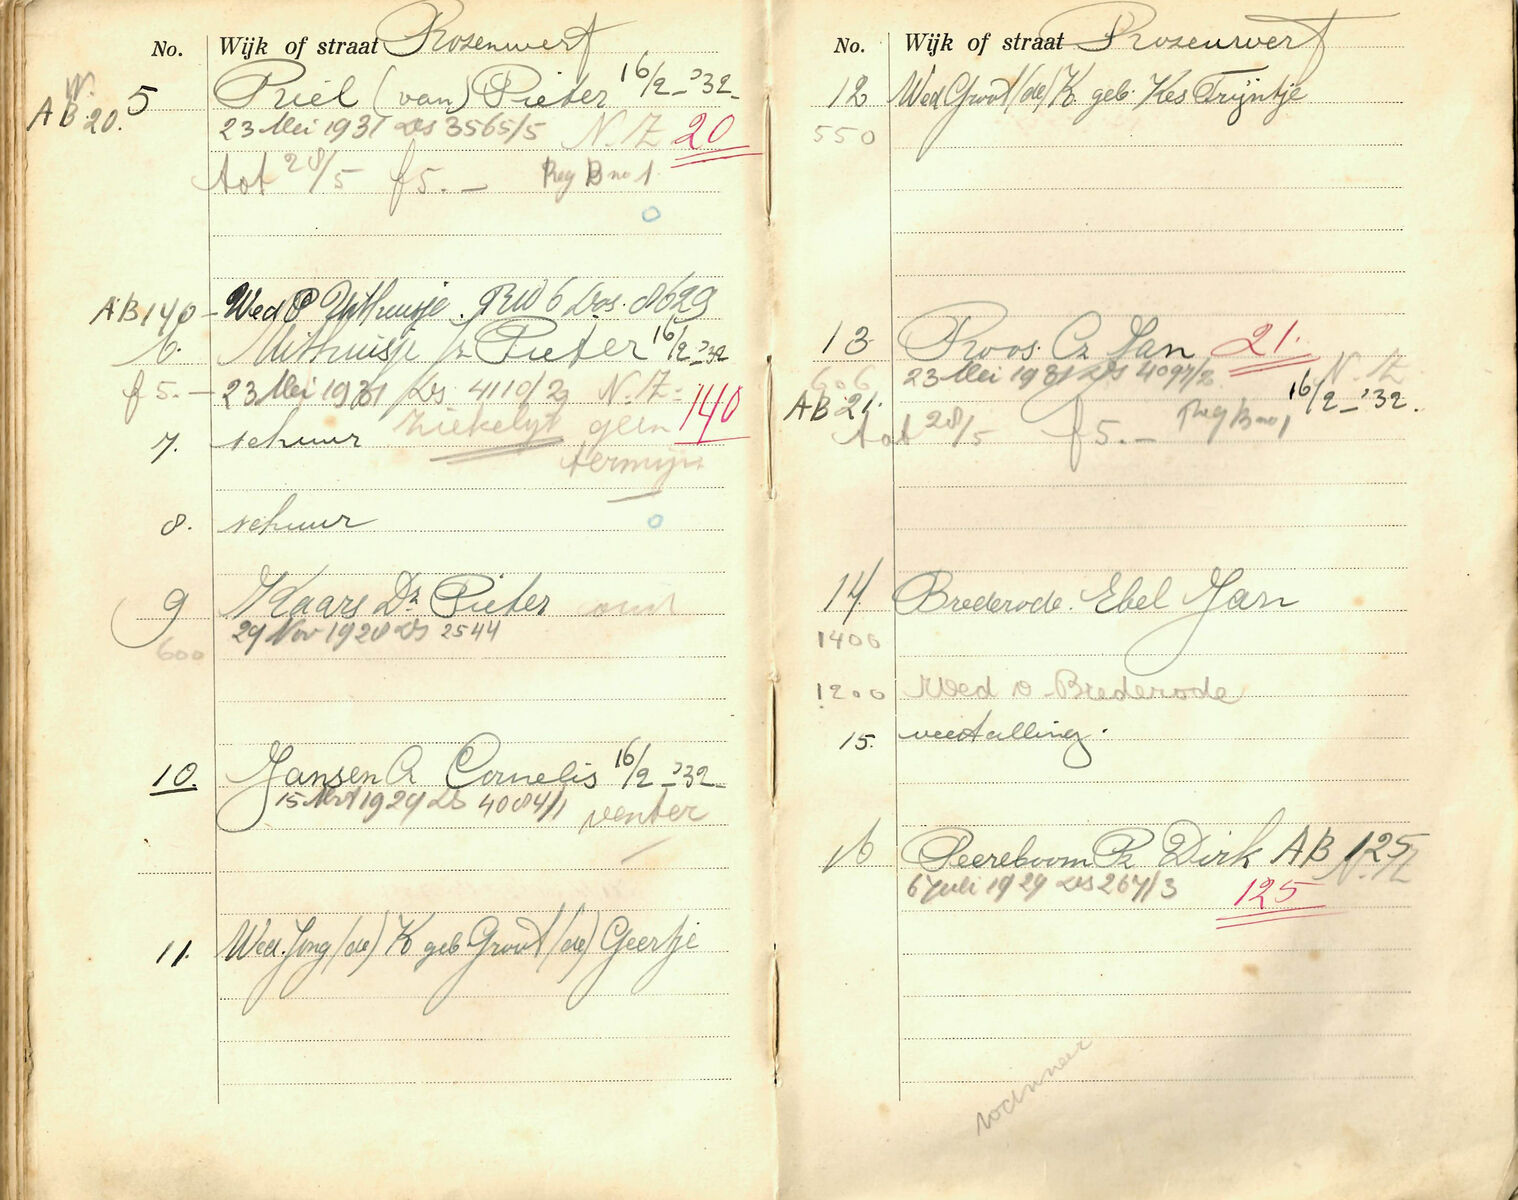 No. Wijk of straat Rozenwerf
W.
AB 20. 5 Riel (van) Pieter 16/2 - '32
23 Mei 1931 Ds 3565/5 N.Z. 20
tot 28/5 f 5.- Reg B no 1.
AB 140 - Wed P Uithuisje. RW 6 Dos. 8629
6. Uithuisje Pieter 16/2 - '32
f 5. - 23 Mei 1931 Ds 4110/2 N.Z. 140
7. schuur ziekelijk geen
termijn
8. schuur
9 Kaars Dz Pieter oud
29 Nov 1928 Ds 2544
600
10. Jansen Cornelis 16/2 - '32
15 1929 Ds 4084/1 venter
11. Wed. Jong (de) K geb Groot (de) Geertje
No. Wijk of straat Rozenwerf
12 Wed Groot (de) K geb. Kes Trijntje
550
13 Roos. Cz Jan 21.
606 23 Mei 1931 Ds 4097/2 N.Z.
AB 21. 16/2 - '32.
tot 28/5 f 5.- Reg B no 1
14 Brederode. Ebel Jan
1400
1200 Wed v Brederode
15. veestalling.
16 Peereboom Pz Dirk AB 125
6 Juli 1929 Ds 267/3 125 N.Z.
wanneer